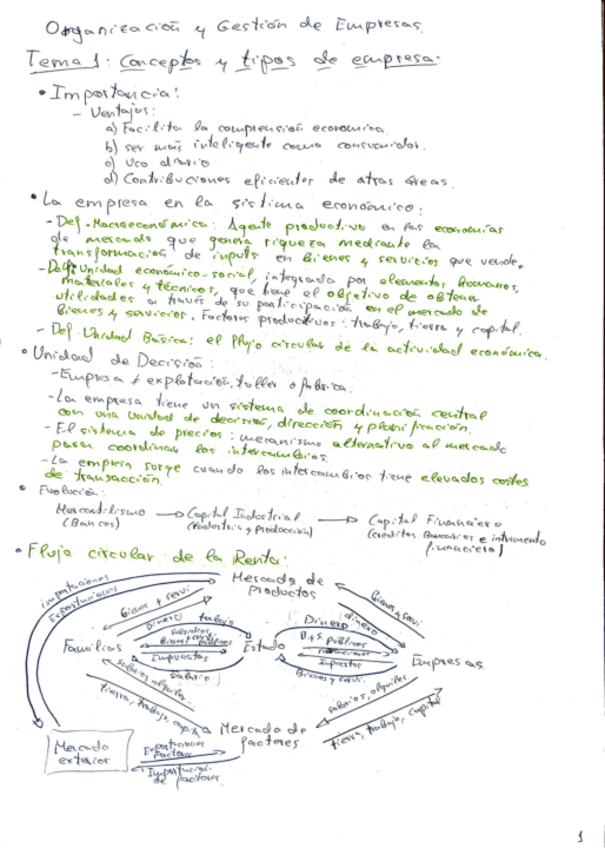 Organización y Gestión de Empresas.
Tema 1: Conceptos y tipos de empresa.
• Importancia:
- Ventajas:
a) Facilita la comprensión economica
b) ser mais inteligente como consumidor.
c) Uso diario
d) Contribuciones eficientes de otras áreas.
• La empresa en la sistema económico:
- Def. Macroeconómica: Agente productivo en las economías
de mercado que genera riqueza mediante la
transformación de inputs en bienes y servicios que vende.
- Def: Unidad económico-social, integrada por elementos humanos,
materiales y técnicos, que tiene el objetivo de obtener
utilidades a través de su participación en el mercado de
bienes y servicios. Factores productivos: trabajo, tierra y capital.
- Def. Unidad Básica: el flujo circular de la actividad económica.
• Unidad de Decisión:
- Empresa ≠ explotación, taller o fabrica.
- La empresa tiene un sistema de coordinación central
con una unidad de decisión, dirección y planificación.
- El sistema de precios: mecanismo alternativo al mercado
para coordinar los intercambios.
- La empresa surge cuando los intercambios tiene elevados costes
de transacción.
• Evolución:
Mercantilismo → Capital Industrial → Capital Financiero
(Bancos) (Industria y Producción) (creditos Bancarios e intrumento
financiero)
• Flujo circular de la Renta:
importaciones
Exportaciones
Mercado de
productos
Bienes + servi
Dinero
Bienes y servi
dinero
Familias
trabajo
Subsidios
Impuestos
Salario
Estado
Dinero
B y S. públicos
Impuestos
Bienes y servi.
Empresas
salarios, alquiler
tierra, trabajo, capital
Mercado de
factores
salarios, alquiler
tierra, trabajo, capital
Mercado
exterior
Exportaciones
Factores
Importación
de factores
1